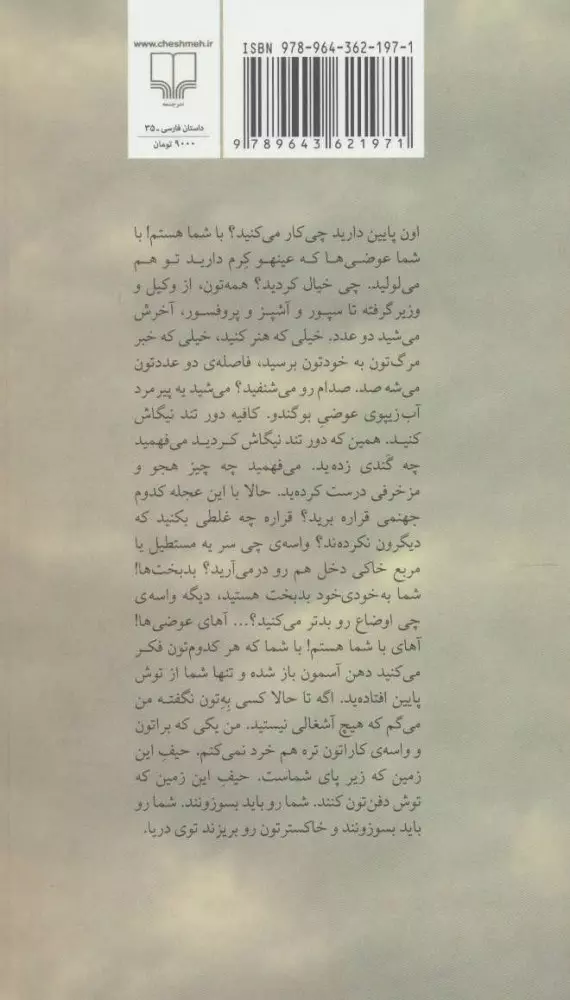 www.cheshmeh.ir
نشرچشمه
داستان فارسی ـ ۳۵
۹۰۰۰ تومان
ISBN 978-964-362-197-1
9 789643 621971
اون پایین دارید چی‌کار می‌کنید؟ با شما هستم! با
شما عوضی‌ها که عینهو کِرم دارید تو هم
می‌لولید. چی خیال کردید؟ همه‌تون، از وکیل و
وزیر گرفته تا سپور و آشپز و پروفسور، آخرش
می‌شید دو عدد. خیلی که هنر کنید، خیلی که خبر
مرگ‌تون به خودتون برسید، فاصله‌ی دو عددتون
می‌شه صد. صدام رو می‌شنفید؟ می‌شید یه پیرمرد
آب‌زیپوی عوضیِ بوگندو. کافیه دور تند نیگاش
کنید. همین که دور تند نیگاش کردید می‌فهمید
چه گَندی زده‌ید. می‌فهمید چه چیز هجو و
مزخرفی درست کرده‌ید. حالا با این عجله کدوم
جهنمی قراره برید؟ قراره چه غلطی بکنید که
دیگرون نکرده‌ند؟ واسه‌ی چی سر یه مستطیل یا
مربع خاکی دخل هم رو درمی‌آرید؟ بدبخت‌ها!
شما به‌خودی‌خود بدبخت هستید، دیگه واسه‌ی
چی اوضاع رو بدتر می‌کنید؟... آهای عوضی‌ها!
آهای با شما هستم! با شما که هر کدوم‌تون فکر
می‌کنید دهن آسمون باز شده و تنها شما از توش
پایین افتاده‌ید. اگه تا حالا کسی بِهِ‌تون نگفته من
می‌گم که هیچ آشغالی نیستید. من یکی که براتون
و واسه‌ی کاراتون تره هم خرد نمی‌کنم. حیفِ این
زمین که زیر پای شماست. حیفِ این زمین که
توش دفن‌تون کنند. شما رو باید بسوزونند. شما رو
باید بسوزونند و خاکسترتون رو بریزند توی دریا.